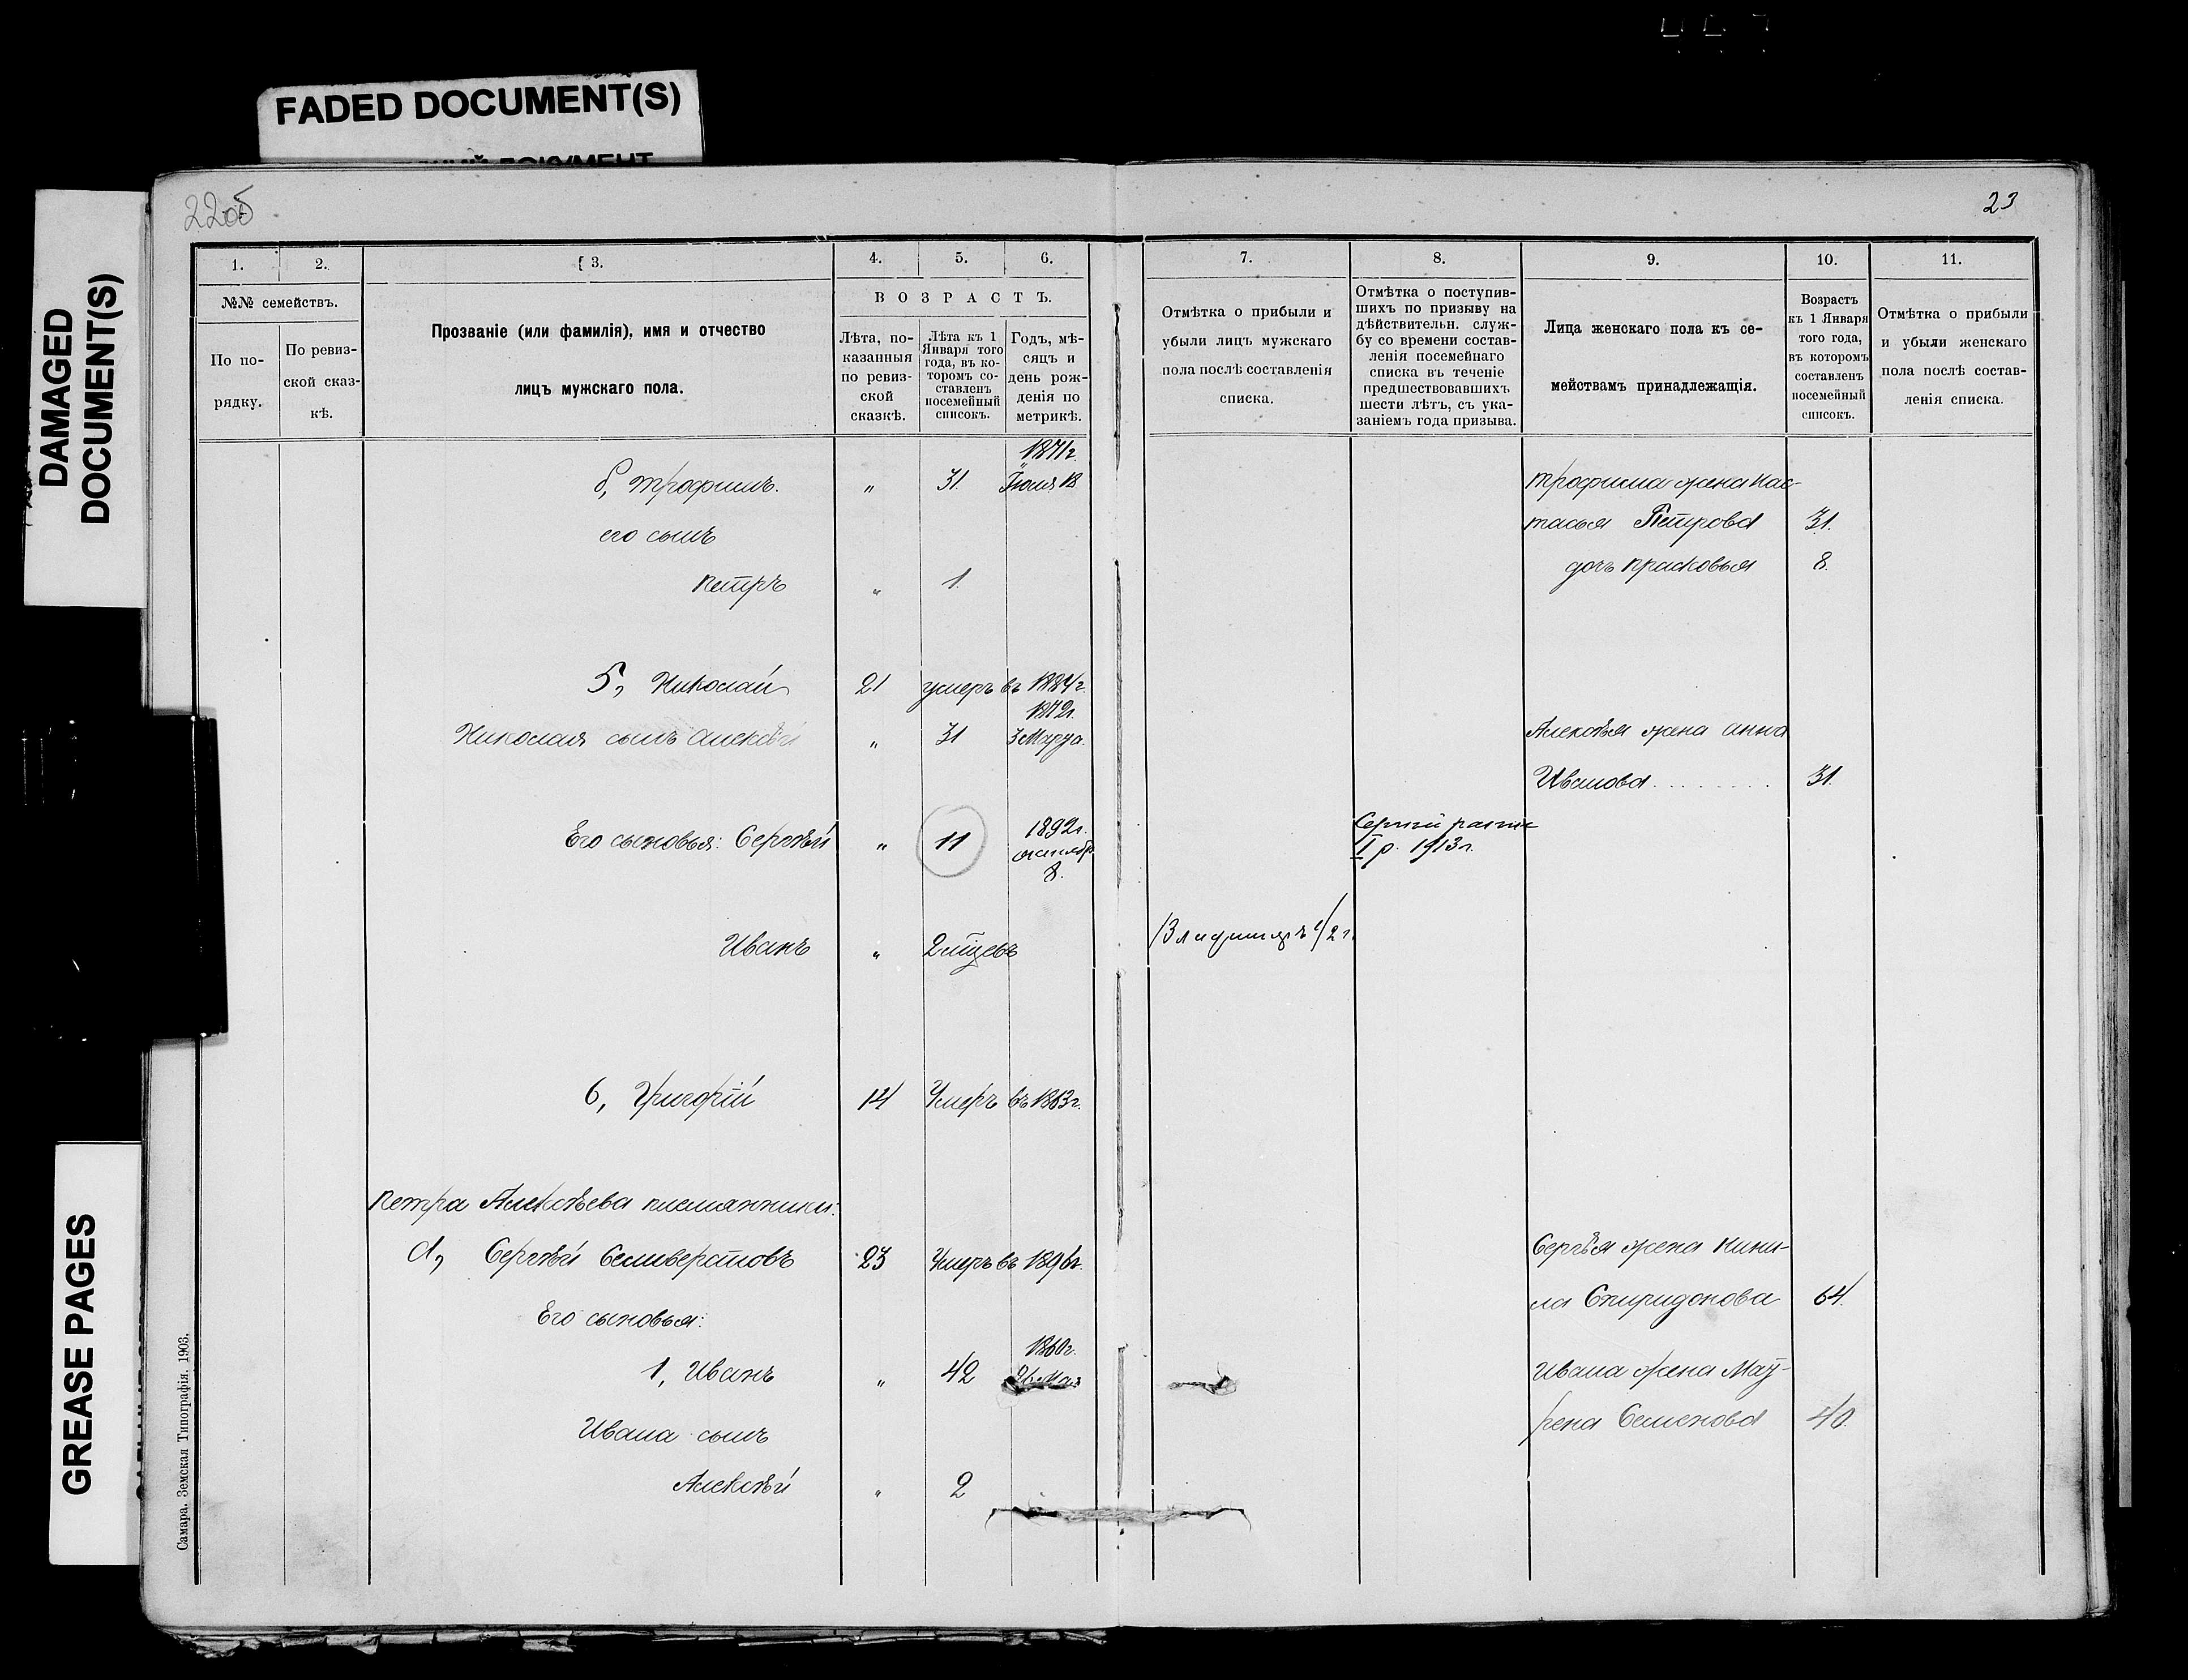 FADED DOCUMENT(S)
DAMAGED
DOCUMENT(S)
GREASE PAGES
22об
23
1.
2.
3.
4.
5.
6.
7.
8.
9.
10.
11.
№№ семействъ.
По по-
рядку.
По ревиз-
ской сказ-
кѣ.
Прозваніе (или фамилія), имя и отчество
лицъ мужскаго пола.
ВОЗРАСТЪ.
Лѣта, по-
казанныя
по ревиз-
ской
сказкѣ.
Лѣта къ 1
Января того
года, въ ко-
торомъ со-
ставленъ
посемейный
списокъ.
Годъ, мѣ-
сяцъ и
день рож-
денія по
метрикѣ.
Отмѣтка о прибыли и
убыли лицъ мужскаго
пола послѣ составленія
списка.
Отмѣтка о поступив-
шихъ по призыву на
дѣйствительн. служ-
бу со времени состав-
ленія посемейнаго
списка въ теченіе
предшествовавшихъ
шести лѣтъ, съ ука-
заніемъ года призыва.
Лица женскаго пола къ се-
мействамъ принадлежащія.
Возрастъ
къ 1 Января
того года,
въ которомъ
составленъ
посемейный
списокъ.
Отмѣтка о прибыли
и убыли женскаго
пола послѣ состав-
ленія списка.
1871г.
б, Трофимъ. " 31. Іюля 18
Трофима жена Нас-
его сынъ
тасья Петрова 31.
Петръ " 1.
дочь Прасковья 8.
5, Николай 21 умеръ въ 1884г.
1872г.
Николая сынъ Алексѣй " 31 3 Марта.
Алексѣя жена Анна
Иванова . . . . . . . . 31.
Его сыновья: Сергѣй " 11 1892г.
октябр.
8.
Сергей ратн.
II р. 1913г.
Иванъ " 2 мѣсв
6, Григорій 14 Умеръ въ 1863г.
Петра Алексѣева племянники:
а, Сергѣй Селиверстовъ 23 Умеръ въ 1896г.
Сергѣя жена Кили-
на Спиридонова 64.
Его сыновья:
1860г.
1, Иванъ " 42 26 Мая
Ивана жена Мау-
Ивана сынъ
рена Семенова 40.
Алексѣй " 2
Самара. Земская Типографія. 1903.